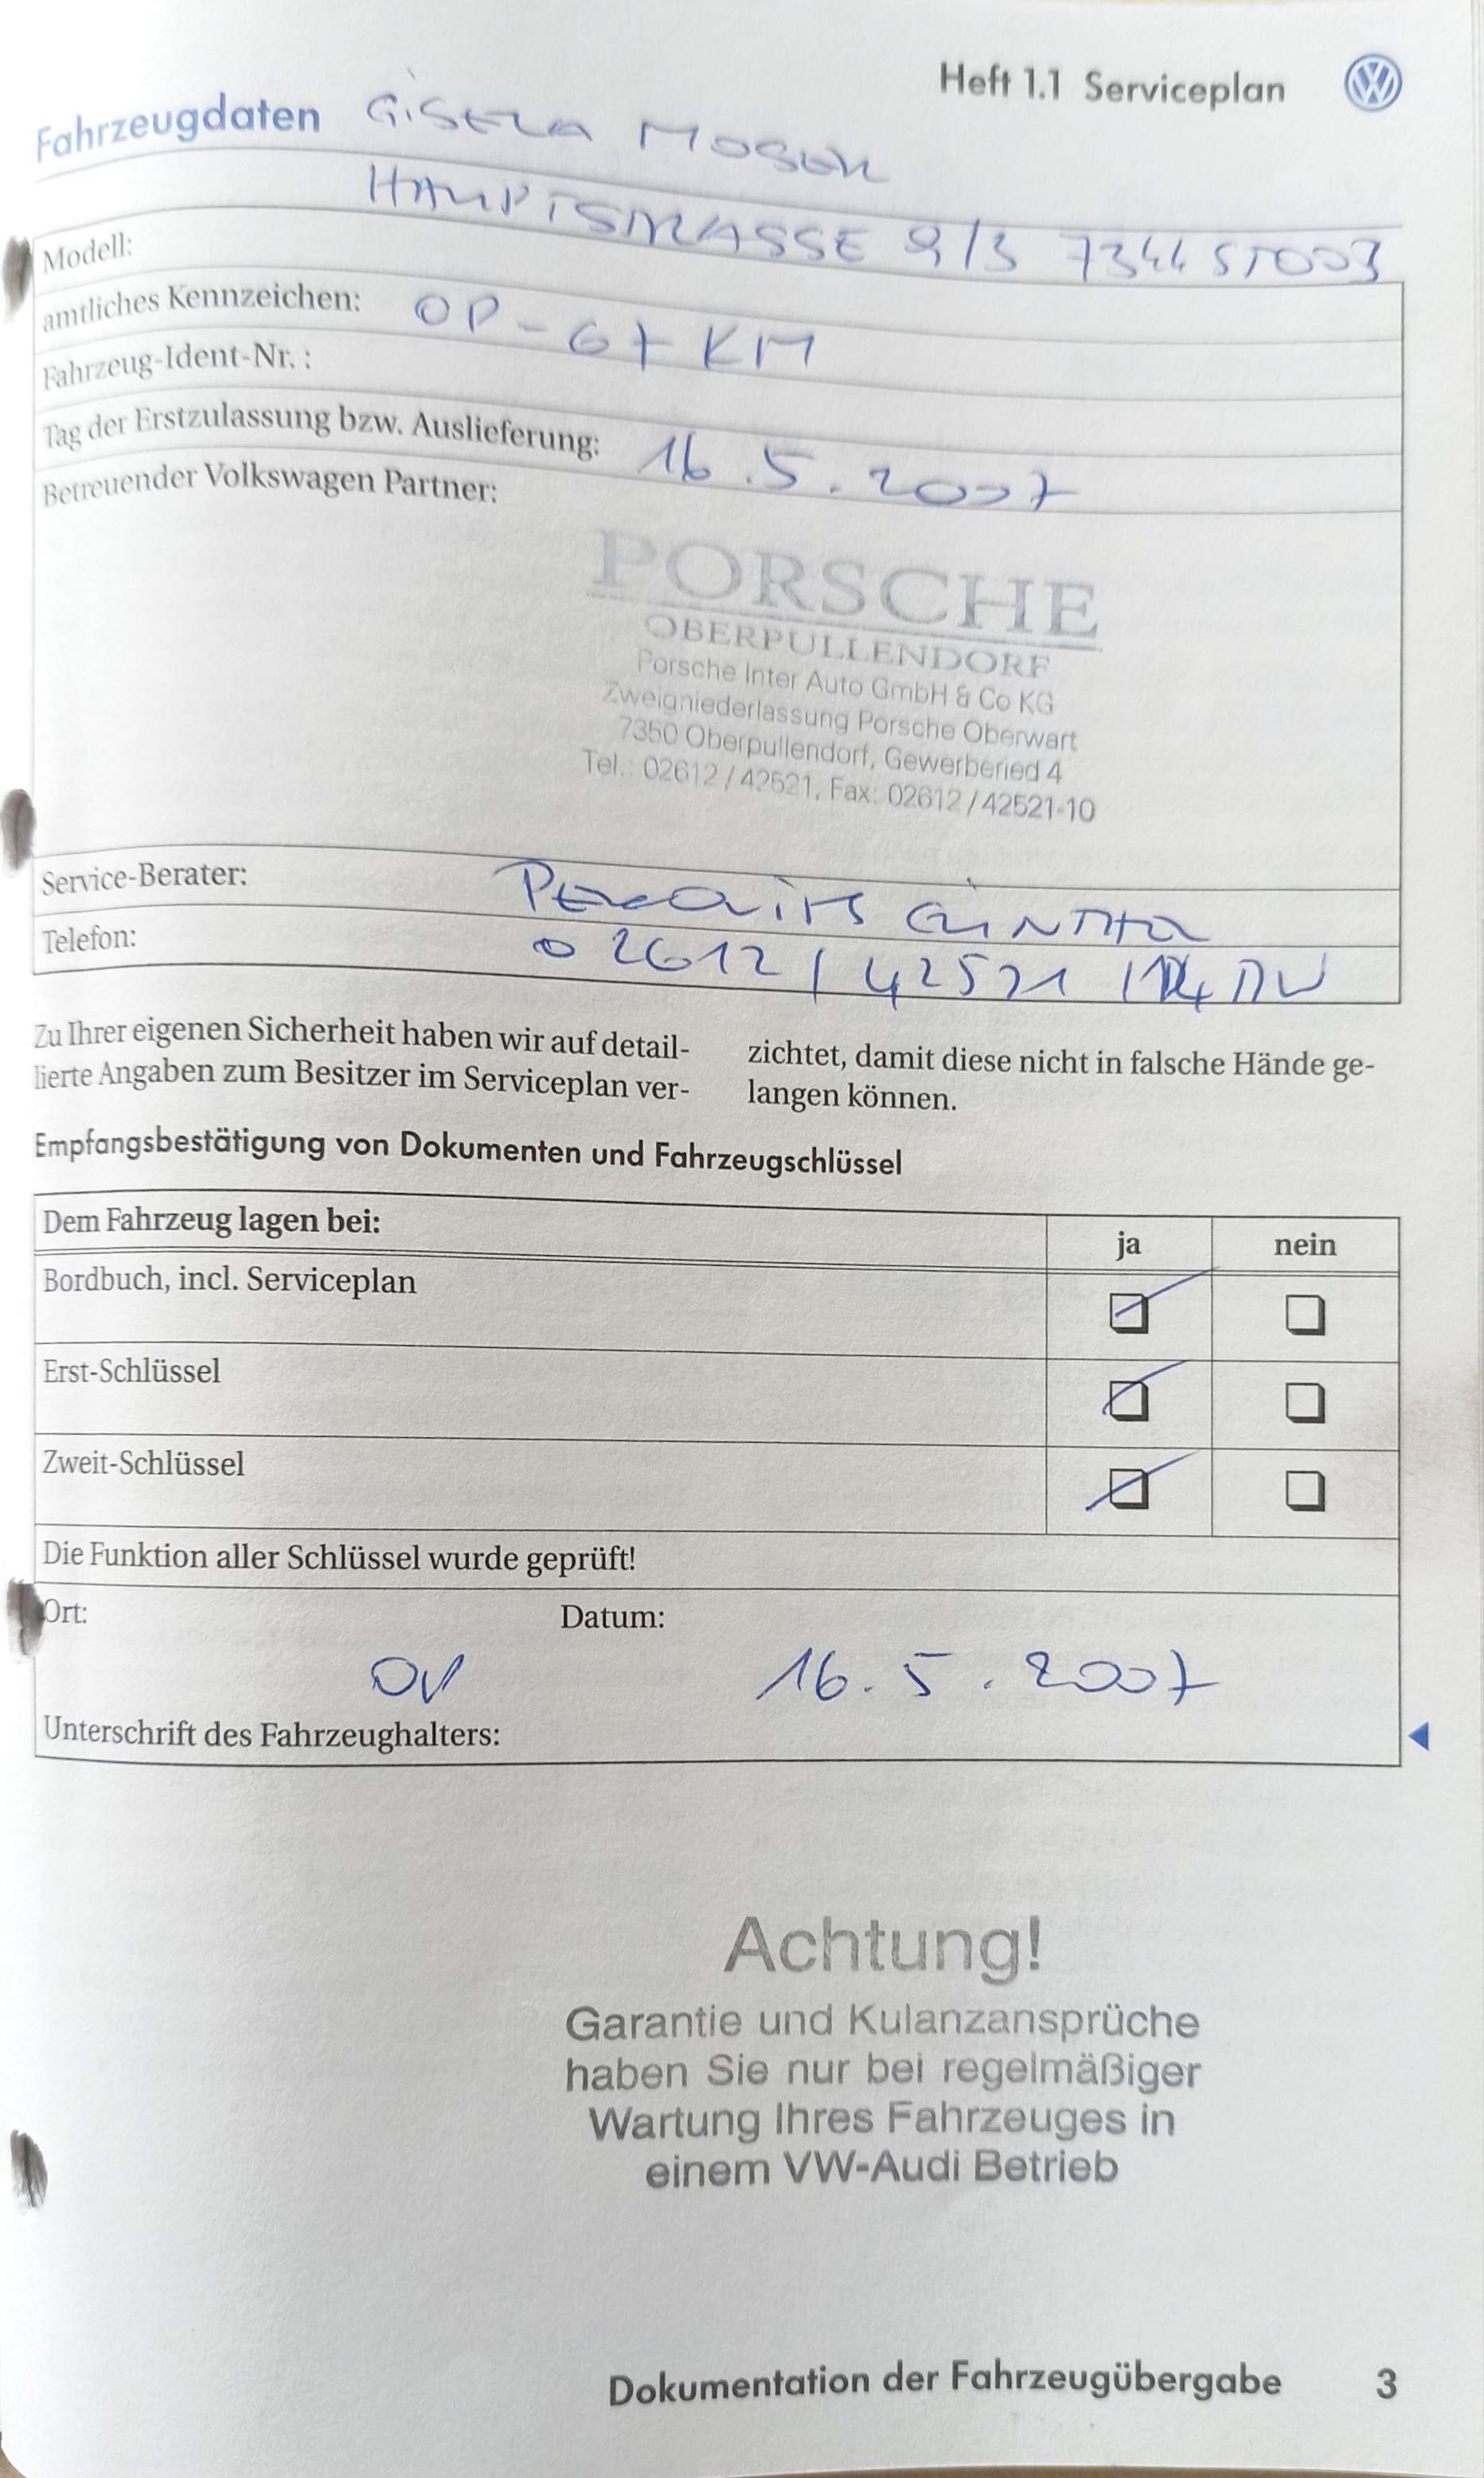 Heft 1.1 Serviceplan
Fahrzeugdaten GISELA MOSER
HAUPTSTRASSE 9/3 7344 STOOB
Modell:
amtliches Kennzeichen: OP-67KM
Fahrzeug-Ident-Nr. :
Tag der Erstzulassung bzw. Auslieferung: 16.5.2007
Betreuender Volkswagen Partner:
PORSCHE
OBERPULLENDORF
Porsche Inter Auto GmbH & Co KG
Zweigniederlassung Porsche Oberwart
7350 Oberpullendorf, Gewerberied 4
Tel.: 02612/42521, Fax: 02612/42521-10
Service-Berater:
Telefon: 02612/42521
Zu Ihrer eigenen Sicherheit haben wir auf detail-
lierte Angaben zum Besitzer im Serviceplan ver-
zichtet, damit diese nicht in falsche Hände ge-
langen können.
Empfangsbestätigung von Dokumenten und Fahrzeugschlüssel
Dem Fahrzeug lagen bei: ja nein
Bordbuch, incl. Serviceplan
Erst-Schlüssel
Zweit-Schlüssel
Die Funktion aller Schlüssel wurde geprüft!
Ort: Datum:
OP 16.5.2007
Unterschrift des Fahrzeughalters:
Achtung!
Garantie und Kulanzansprüche
haben Sie nur bei regelmäßiger
Wartung Ihres Fahrzeuges in
einem VW-Audi Betrieb
Dokumentation der Fahrzeugübergabe 3